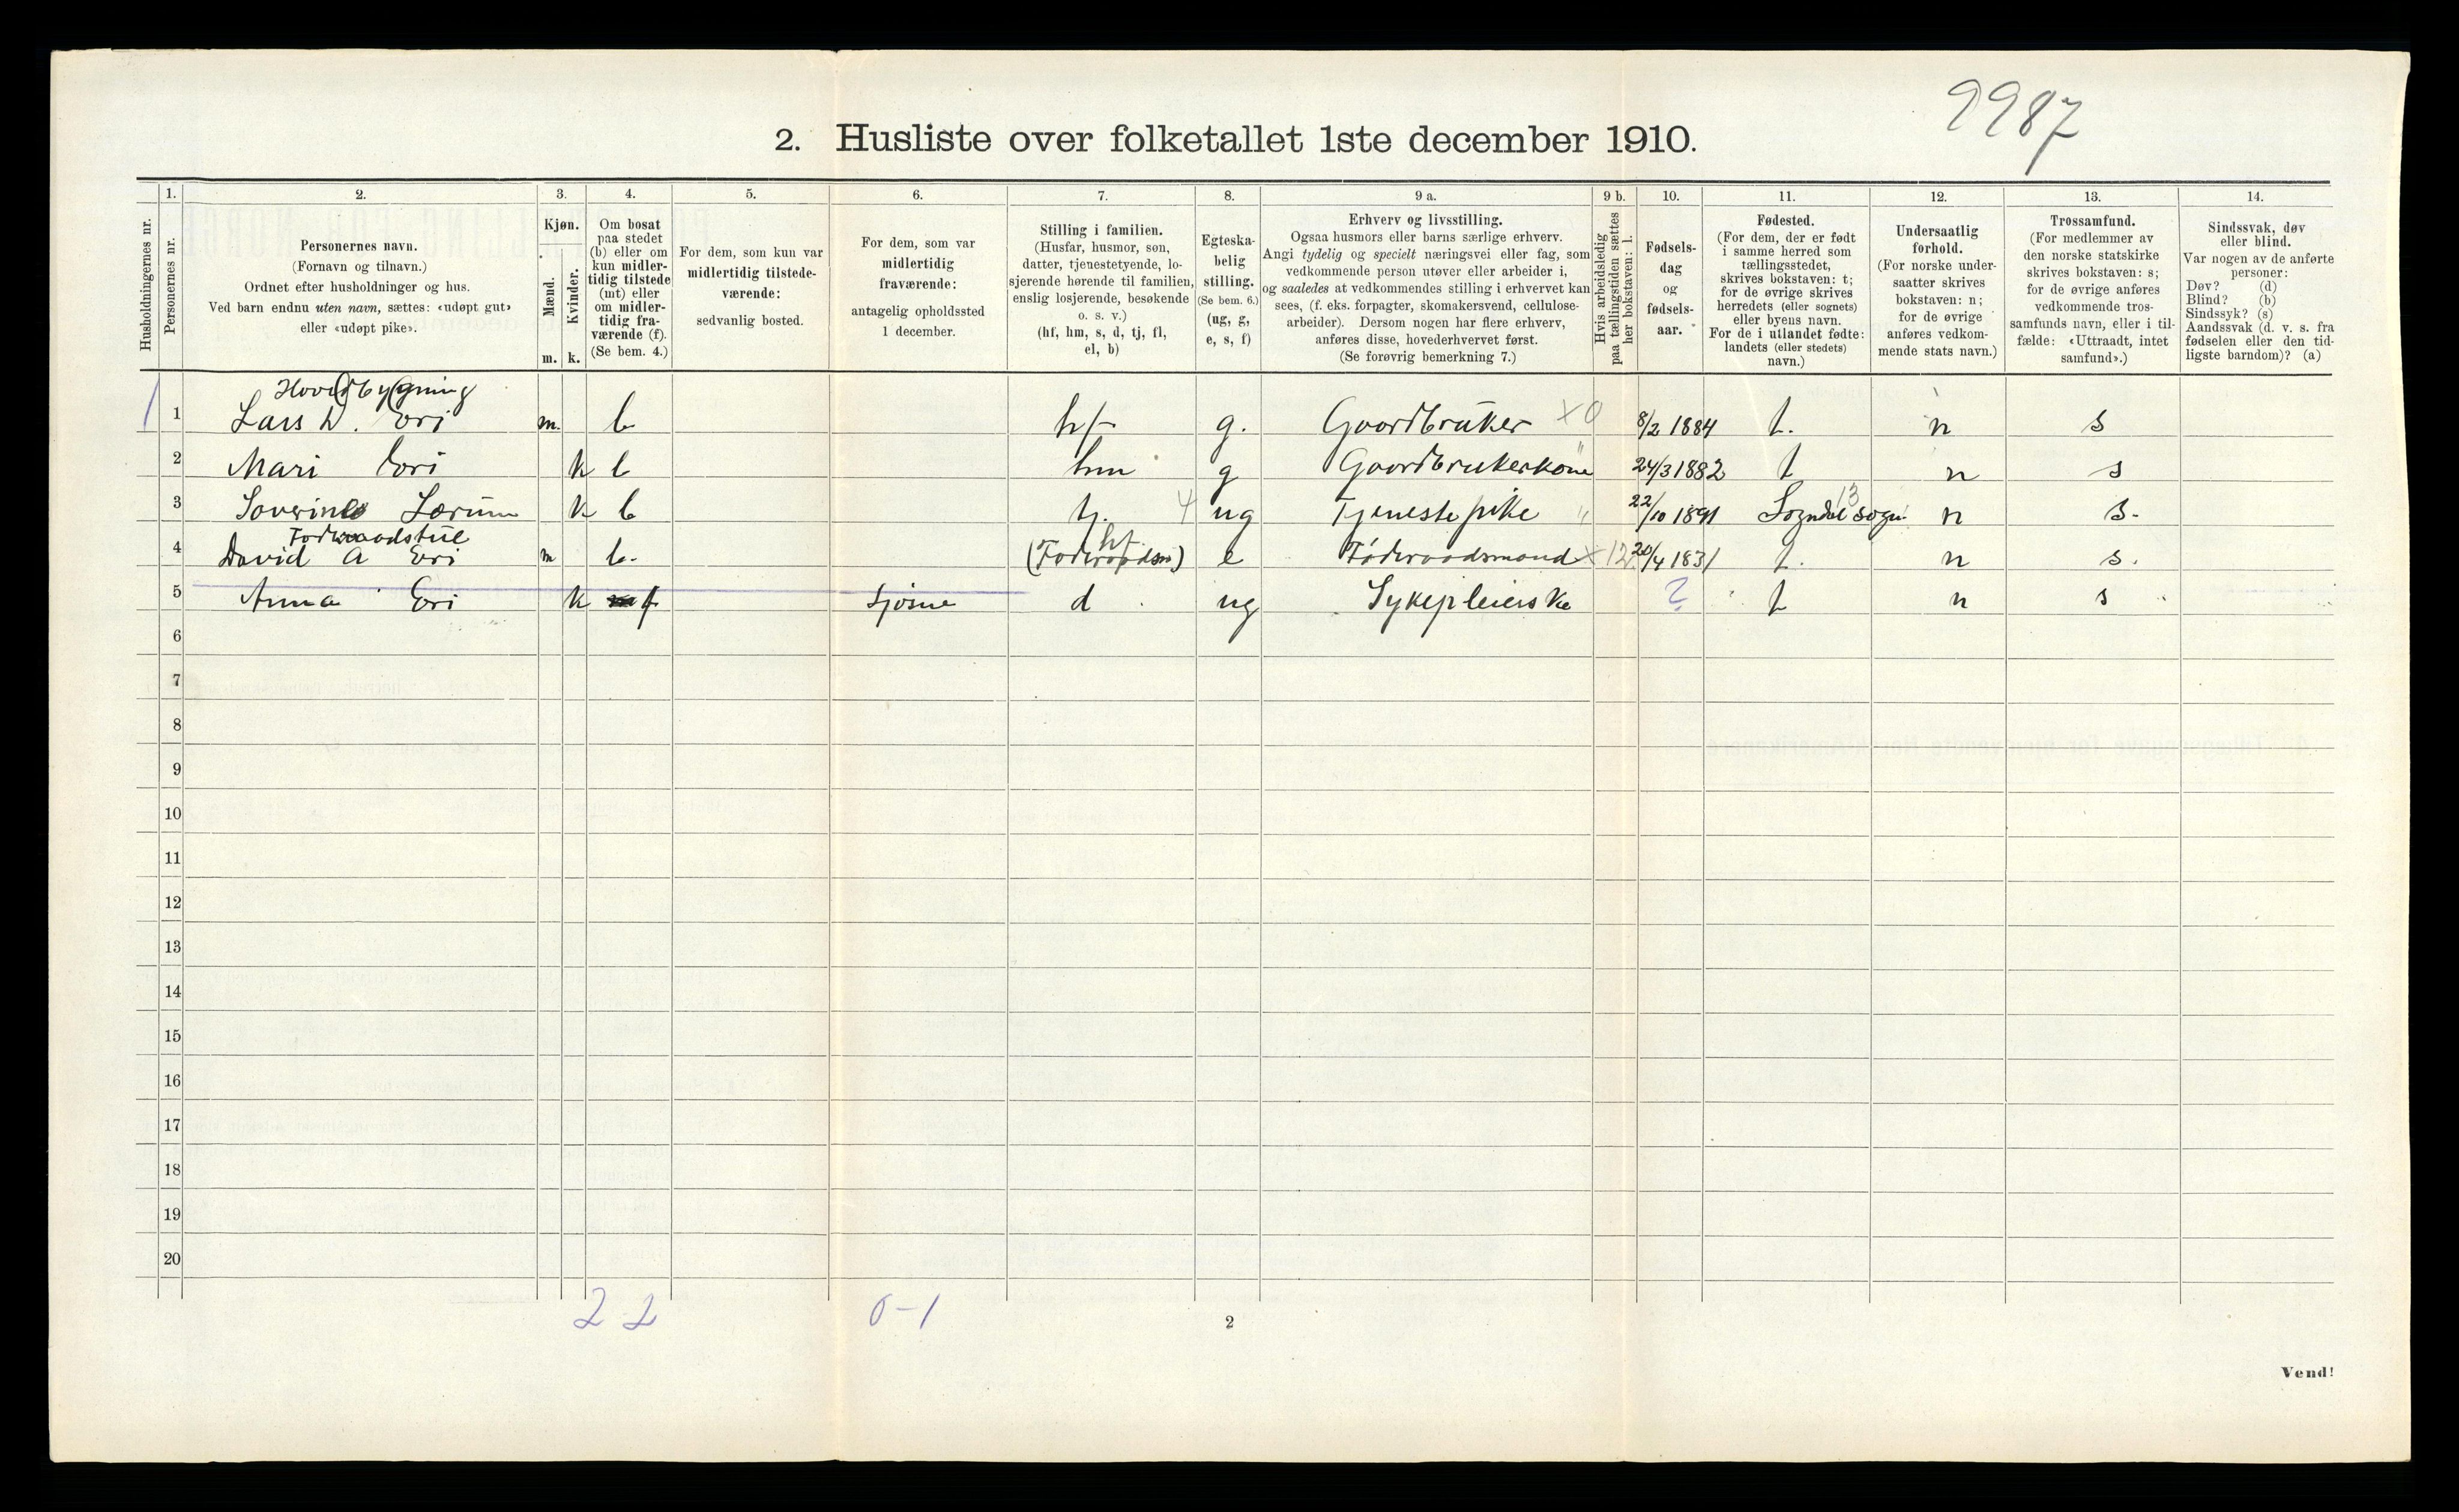 9987
2. Husliste over folketallet 1ste december 1910.
Husholdningernes nr.
1. Personernes nr.
2. Personernes navn.
(Fornavn og tilnavn.)
Ordnet efter husholdninger og hus.
Ved barn endnu uten navn, sættes: «udøpt gut»
eller «udøpt pike».
3. Kjøn.
Mænd. m.
Kvinder. k.
4. Om bosat
paa stedet
(b) eller om
kun midler-
tidig tilstede
(mt) eller
om midler-
tidig fra-
værende (f).
(Se bem. 4.)
5. For dem, som kun var
midlertidig tilstede-
værende:
sedvanlig bosted.
6. For dem, som var
midlertidig
fraværende:
antagelig opholdssted
1 december.
7. Stilling i familien.
(Husfar, husmor, søn,
datter, tjenestetyende, lo-
sjerende hørende til familien,
enslig losjerende, besøkende
o. s. v.)
(hf, hm, s, d, tj, fl,
el, b)
8. Egteska-
belig
stilling.
(Se bem. 6.)
(ug, g,
e, s, f)
9 a. Erhverv og livsstilling.
Ogsaa husmors eller barns særlige erhverv.
Angi tydelig og specielt næringsvei eller fag, som
vedkommende person utøver eller arbeider i,
og saaledes at vedkommendes stilling i erhvervet kan
sees, (f. eks. forpagter, skomakersvend, cellulose-
arbeider). Dersom nogen har flere erhverv,
anføres disse, hovederhvervet først.
(Se forøvrig bemerkning 7.)
9 b. Hvis arbeidsledig
paa tællingstiden sættes
her bokstaven: l.
10. Fødsels-
dag
og
fødsels-
aar.
11. Fødested.
(For dem, der er født
i samme herred som
tællingsstedet,
skrives bokstaven: t;
for de øvrige skrives
herredets (eller sognets)
eller byens navn.
For de i utlandet fødte:
landets (eller stedets)
navn.)
12. Undersaatlig
forhold.
(For norske under-
saatter skrives
bokstaven: n;
for de øvrige
anføres vedkom-
mende stats navn.)
13. Trossamfund.
(For medlemmer av
den norske statskirke
skrives bokstaven: s;
for de øvrige anføres
vedkommende tros-
samfunds navn, eller i til-
fælde: «Uttraadt, intet
samfund».)
14. Sindssvak, døv
eller blind.
Var nogen av de anførte
personer:
Døv? (d)
Blind? (b)
Sindssyk? (s)
Aandssvak (d. v. s. fra
fødselen eller den tid-
ligste barndom)? (a)
Hovedbygning
1 1 Lars D. Eri m. b hf g. Gaardbruker x0 8/2 1884 t. n s
2 Mari Eri k b hm g Gaardbrukerkone " 24/3 1882 t n s
3 Lærum k b tj. 4 ug Tjenestepike " 22/10 1891 Sogndal sogn 13 n s.
David A Eri
4 m b. hf e x 12 20/4 1831 t. n s.
5 Anna Eri k f d ug Sykepleierske ? t n s
6
7
8
9
10
11
12
13
14
15
16
17
18
19
20
2 2 0-1
2
Vend!